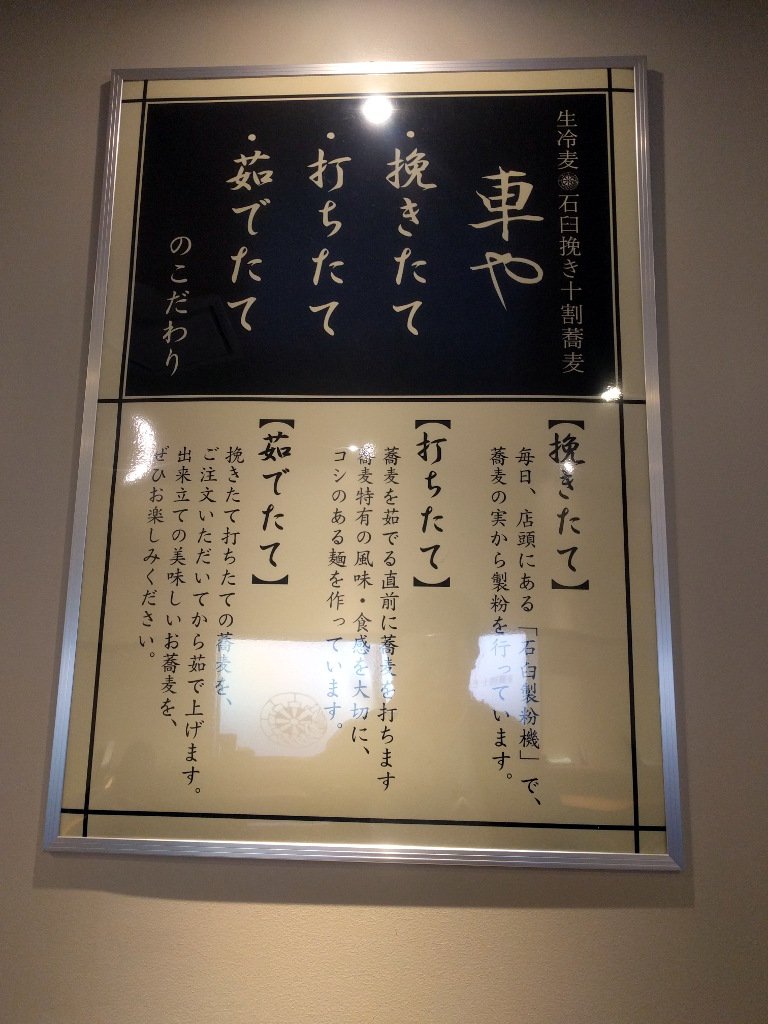 生冷麦 石臼挽き十割蕎麦
車や
・挽きたて
・打ちたて
・茹でたて
のこだわり
【挽きたて】
毎日、店頭にある「石臼製粉機」で、
蕎麦の実から製粉を行っています。
【打ちたて】
蕎麦を茹でる直前に蕎麦を打ちます
蕎麦特有の風味・食感を大切に、
コシのある麺を作っています。
【茹でたて】
挽きたて打ちたての蕎麦を、
ご注文いただいてから茹で上げます。
出来立ての美味しいお蕎麦を、
ぜひお楽しみください。